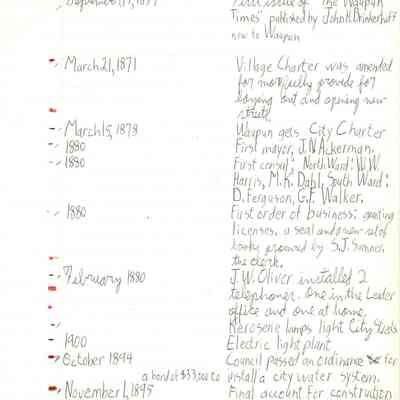 First issue of "The Waupun
Times" published by John H. Brinkerhoff
new to Waupun
March 21, 1871
Village Charter was amended
for more fully provide for
laying out and opening new
streets
March 15, 1878
Waupun gets City Charter
1880
First mayor, J.N. Ackerman.
1880
First consul: North Ward: W.W.
Harris, M.K. Dahl, South Ward:
D. Ferguson, G.F. Walker.
1880
First order of business: granting
licenses, a seal and a new set of
books procured by S.J. Sumner,
the clerk.
February 1880
J.W. Oliver installed 2
telephones. One in the Leader
office and one at home.
Kerosene lamps light City Streets
1900
Electric light plant
October 1894
Council passed an ordinance for
a bond of $33,000 to install a city water system.
November 1, 1895
Final account for construction